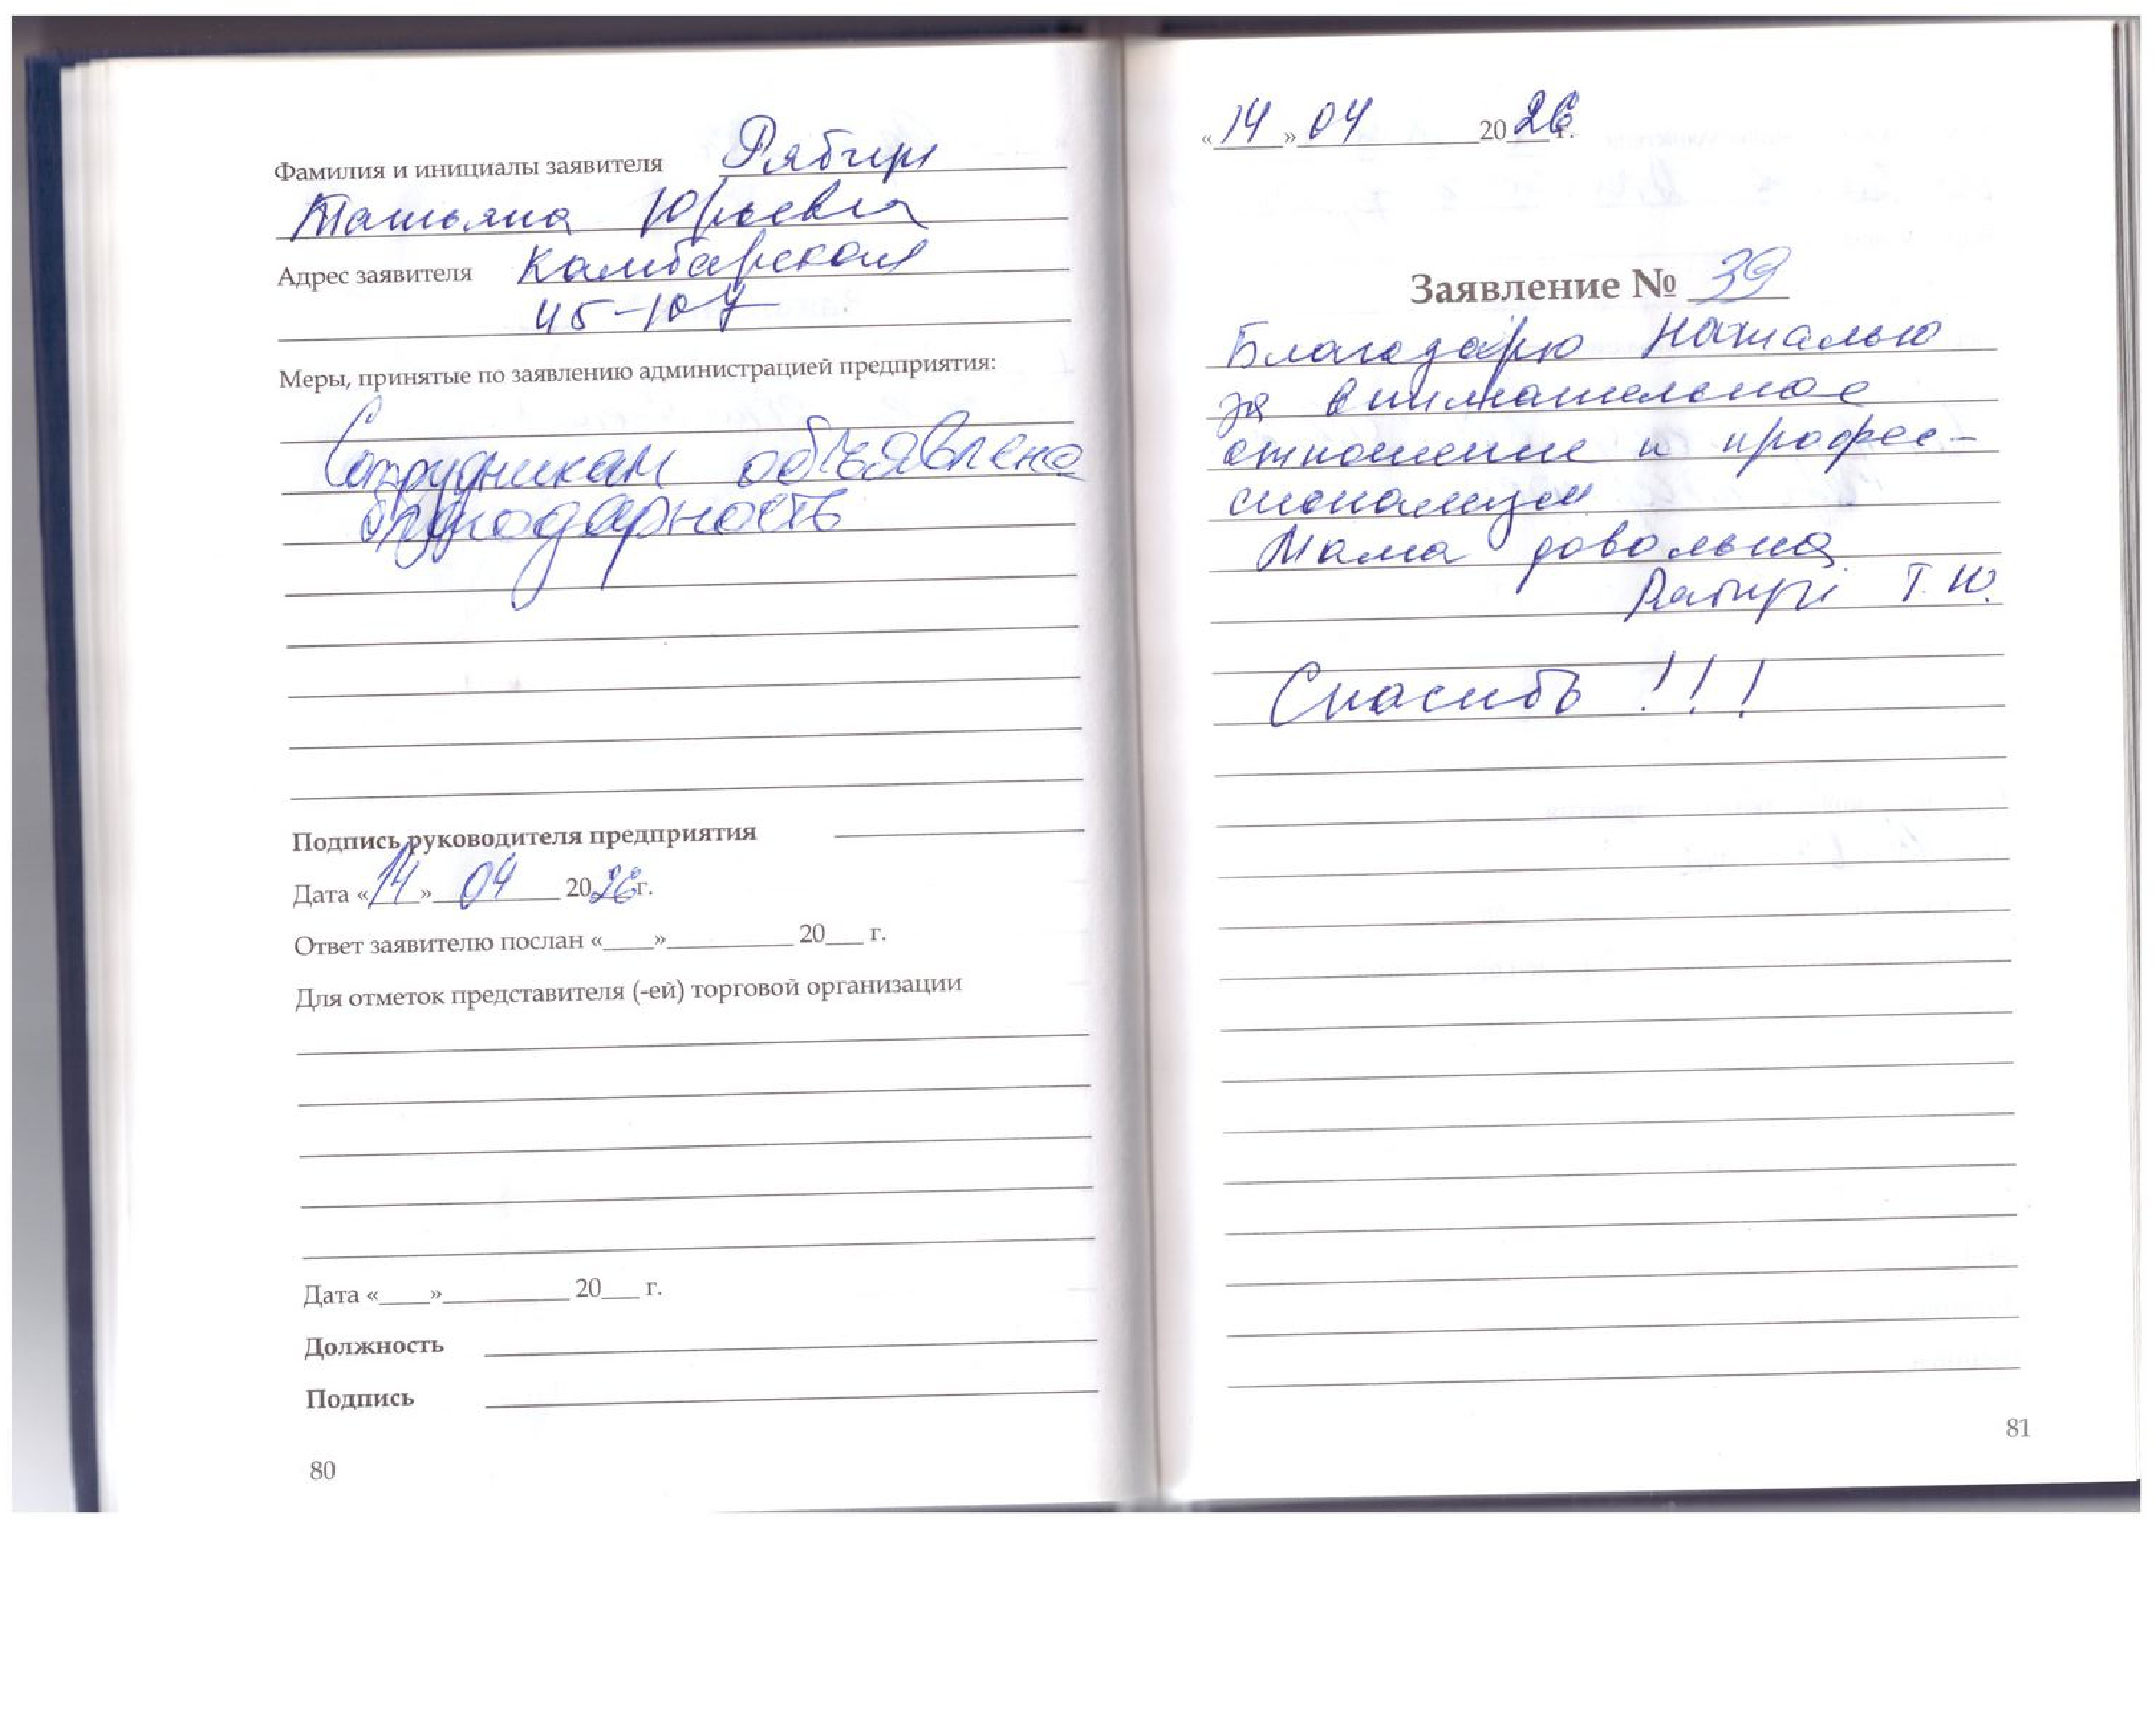 Фамилия и инициалы заявителя
Татьяна Юрьевна
Адрес заявителя Камбарская
45-107
Меры, принятые по заявлению администрацией предприятия:
Сотрудникам объявлена
благодарность
Подпись руководителя предприятия
Дата «14» 04 2026г.
Ответ заявителю послан «____»__________ 20___ г.
Для отметок представителя (-ей) торговой организации
Дата «____»__________ 20___ г.
Должность
Подпись
80
«14» 04 2026г.
Заявление № 39
Благодарю Наталью
за внимательное
отношение и профес-
сионализм
Мама довольна
Т. Ю.
Спасибо !!!
81